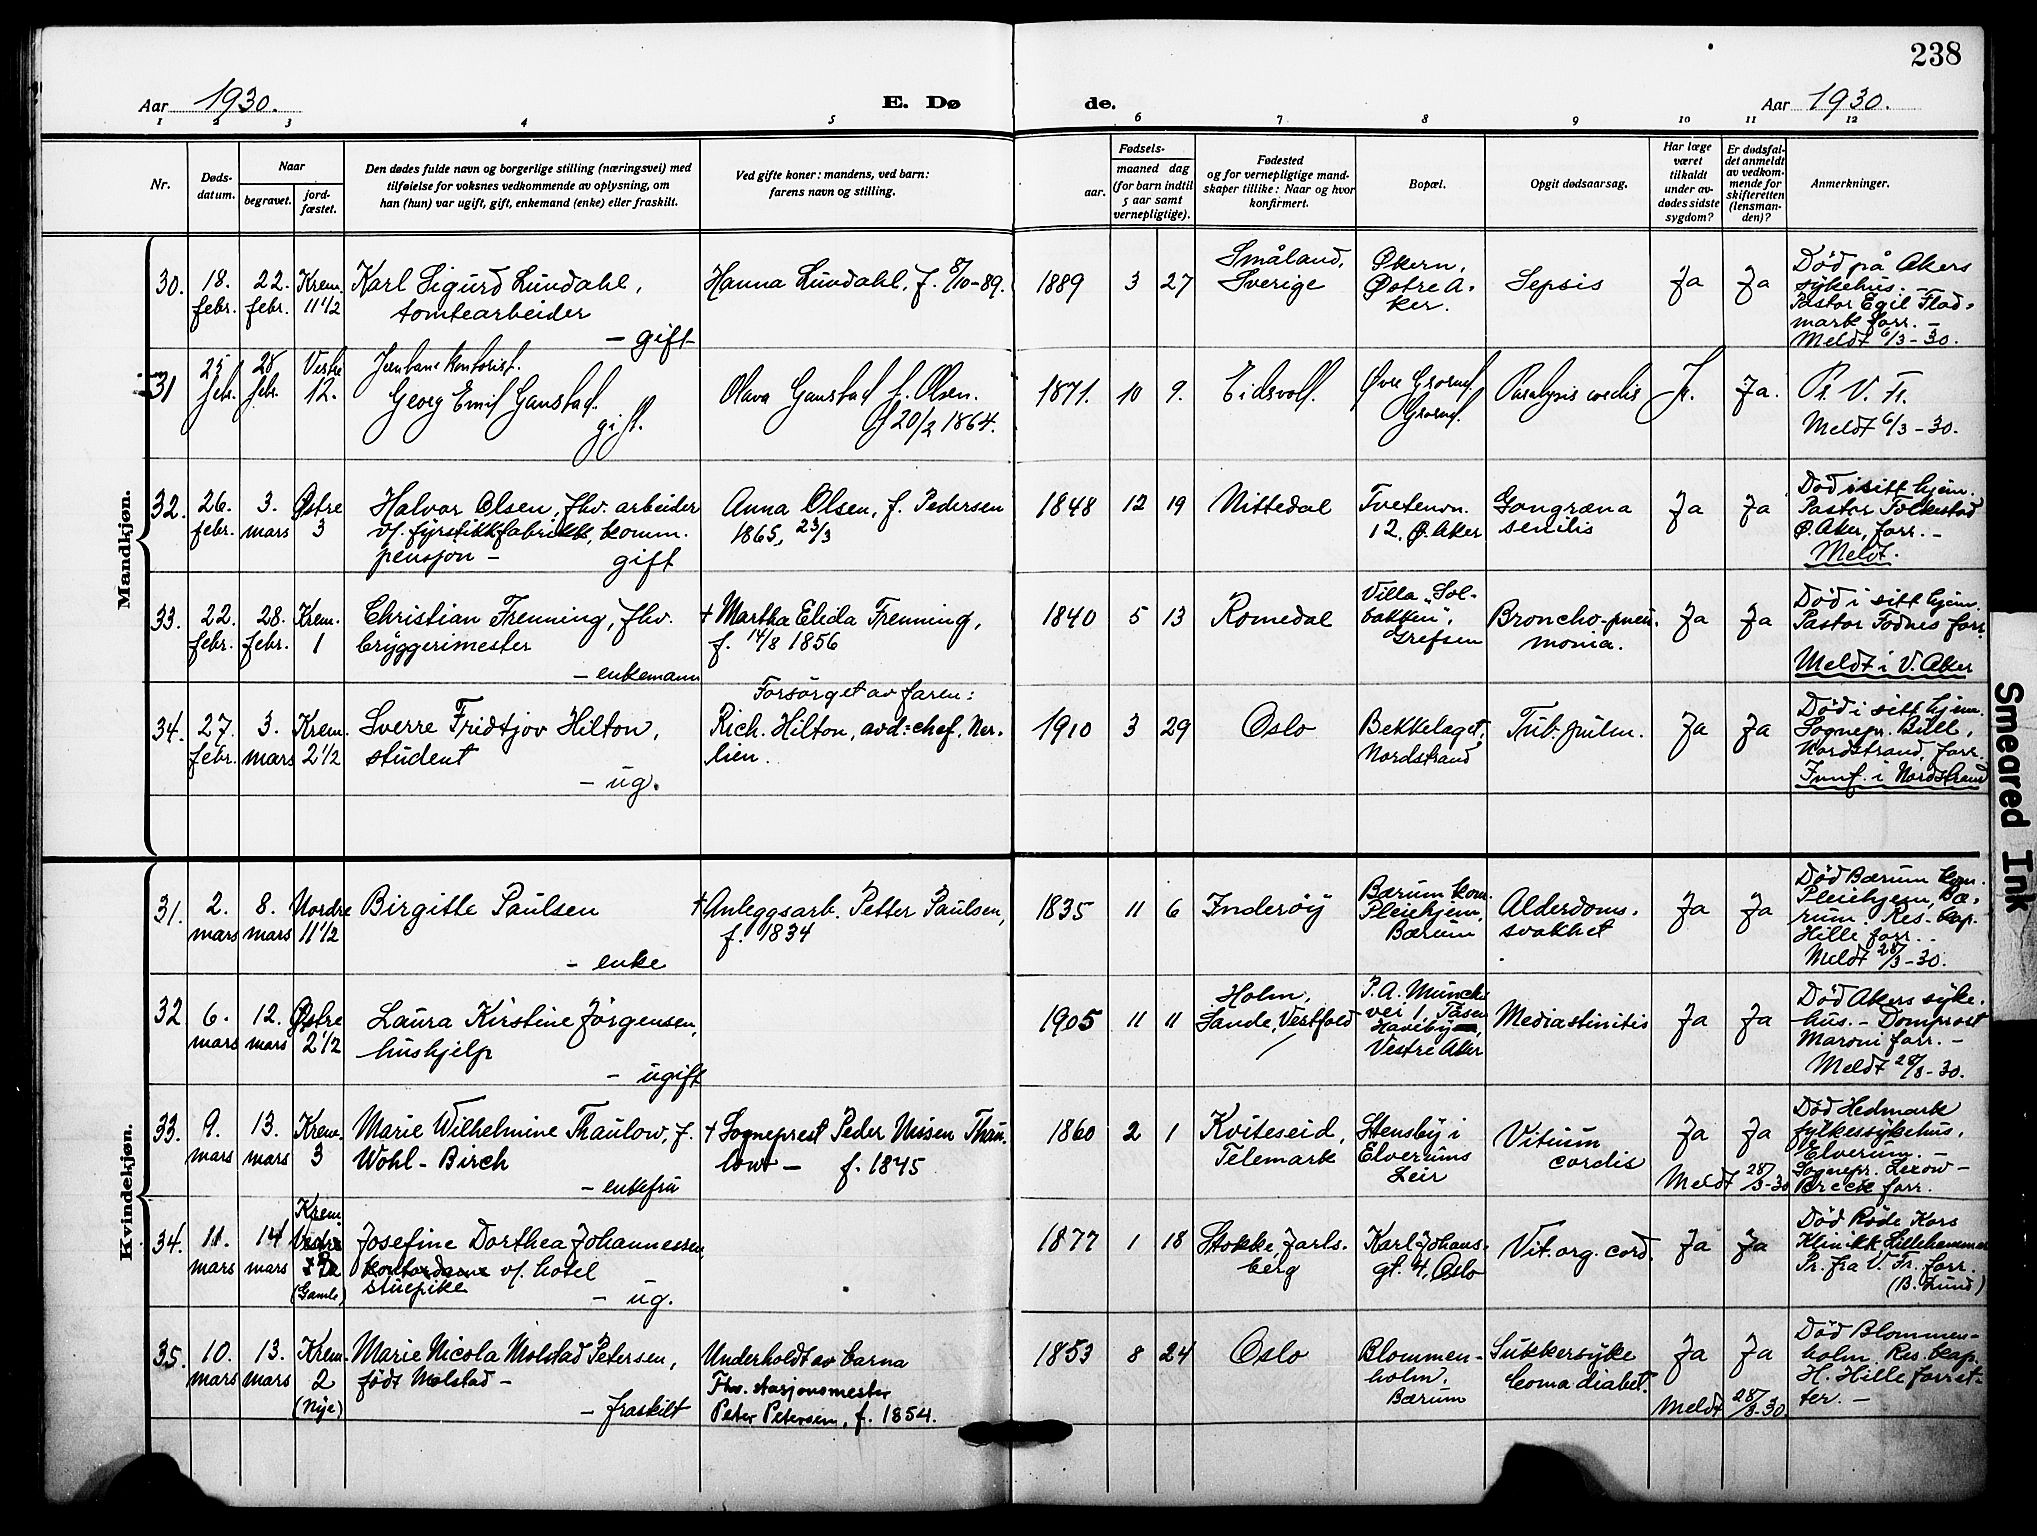 238
Aar 1930.
E. Dø
de.
Aar 1930.
1 2 3 4 5 6 7 8 9 10 11 12
Nr.
Døds-
datum.
Naar
begravet.
jord-
fæstet.
Den dødes fulde navn og borgerlige stilling (næringsvei) med
tilføielse for voksnes vedkommende av oplysning, om
han (hun) var ugift, gift, enkemand (enke) eller fraskilt.
Ved gifte koner: mandens, ved barn:
farens navn og stilling.
Fødsels-
aar.
maaned dag
(for barn indtil
5 aar samt
vernepligtige).
Fødested
og for vernepligtige mand-
skaper tillike: Naar og hvor
konfirmert.
Bopæl.
Opgit dødsaarsag.
Har læge
været
tilkaldt
under av-
dødes sidste
sygdom?
Er dødsfal-
det anmeldt
av vedkom-
mende for
skifteretten
(lensman-
den)?
Anmerkninger.
Mandkjøn.
30.
18.
febr.
22.
febr.
Krem.
11 1/2
Karl Sigurd Lundahl,
tomtearbeider
- gift
Hanna Lundahl, f. 8/10-89.
1889
3
27
Småland,
Sverige
Økern,
Østre A-
ker.
Sepsis
Ja
Ja
Død på Akers
sykehus. -
Pastor Egil Flad-
mark forr. -
Meldt 6/3-30.
31
25
febr.
28
febr.
Vestre
12.
Jernbanekontorist.
Georg Emil Ganstad.
gift.
Olava Ganstad f. Olsen.
f 20/2 1864.
1871.
10
9.
Eidsvoll.
Øvre Grorud.
Grorud.
Paralysis cordis
Ja.
Ja.
Pr. V. Fr.
Meldt 6/3-30.
32.
26.
febr.
3.
mars
Østre
3
Halvor Olsen, fhv. arbeider
v/. fyrstikkfabrikk, komm.
pensjon -
gift
Anna Olsen, f. Pedersen
1865, 23/3
1848
12
19
Nittedal
Tvetenvn.
12, Ø. Aker
Gangræna
senilis
Ja
Ja
Død i sitt hjem.
Pastor Folkestad
Ø. Aker, forr. -
Meldt.
33.
22.
febr.
28.
febr.
Krem.
1
Christian Frenning, fhv.
bryggerimester
- enkemann
+ Martha Elida Frenning,
f. 14/8 1856
1840
5
13
Romedal
Villa „Sol-
bakken",
Grefsen
Broncho-pneu-
monia.
Ja
Ja
Død i sitt hjem.
Pastor Fodnes forr.
Meldt i V. Aker
34.
27.
febr.
3.
mars
Krem.
2 1/2
Sverre Fridtjov Hilton,
student
- ug.
Forsørget av faren:
Rich. Hilton, avd.chef. Ner-
lien.
1910
3
29
Oslo
Bekkelaget,
Nordstrand
Tub. pulm.
Ja
Ja
Død i sitt hjem.
Sognepr. Bull,
Nordstrand, forr.
Innf. i Nordstrand
Kvindekjøn.
31.
2.
mars
8.
mars
Nordre
11 1/2
Birgitte Paulsen
- enke
+ Anleggsarb. Petter Paulsen,
f. 1834
1835
11
6
Inderøy
Bærum kom.
Pleiehjem,
Bærum
Alderdoms-
svakhet
Ja
Ja
Død Bærum kom.
Pleiehjem, Bæ-
rum. Res. kap.
Hille forr. -
Meldt 28/3-30.
32
6.
mars
12.
mars
Østre
2 1/2
Laura Kirstine Jørgensen,
hushjelp
- ugift
1905
11
11
Holm,
Sande, Vestfold
P. A. Munchs
vei 1, Tåsen
Haveby
Vestre Aker
Mediastinitis
Ja
Ja
Død Akers syke-
hus. - Domprost
Maroni forr. -
Meldt 28/3-30.
33.
9.
mars
13.
mars
Krem.
3
Marie Wilhelmine Thaulow, f.
Wohl-Birch
- enkefru
+ Sogneprest Peder Nissen Thau-
low - f. 1845
1860
2
1
Kviteseid,
Telemark
Stensby i
Elverums
Leir
Vitium
cordis
Ja
Ja
Meldt 28/3-30
Død Hedmark
fylkessykehus,
Elverum. -
Sognepr. Lexow-
forr.
34.
11.
mars
14
mars
Krem
Vestre
(Gamle)
Josefine Dorthea Johannessen
kontordame v/. hotel
stuepike
- ug.
1877
1
18
Stokke, Jarls-
berg
Karl Johans-
gt. 4, Oslo
Vit. org. cord.
Ja
Ja
Død Røde Kors
Klinikk Lillehammer
Pr. fra V. Fr. forr.
(B. Lund)
35.
10.
mars
13.
mars
Krem.
2
(Nye)
Marie Nicola Molstad Petersen,
født Molstad -
- fraskilt
Underholdt av barna
Fhv. stasjonsmester
Peter Petersen, f. 1854.
1853
8
24
Oslo
Blommen-
holm,
Bærum
Sukkersyke
Coma diabet.
Ja
Ja
Meldt 28/3-30.
Død Blommen-
holm. Res. kap.
H. Hille forret-
ter. -
Smeared Ink